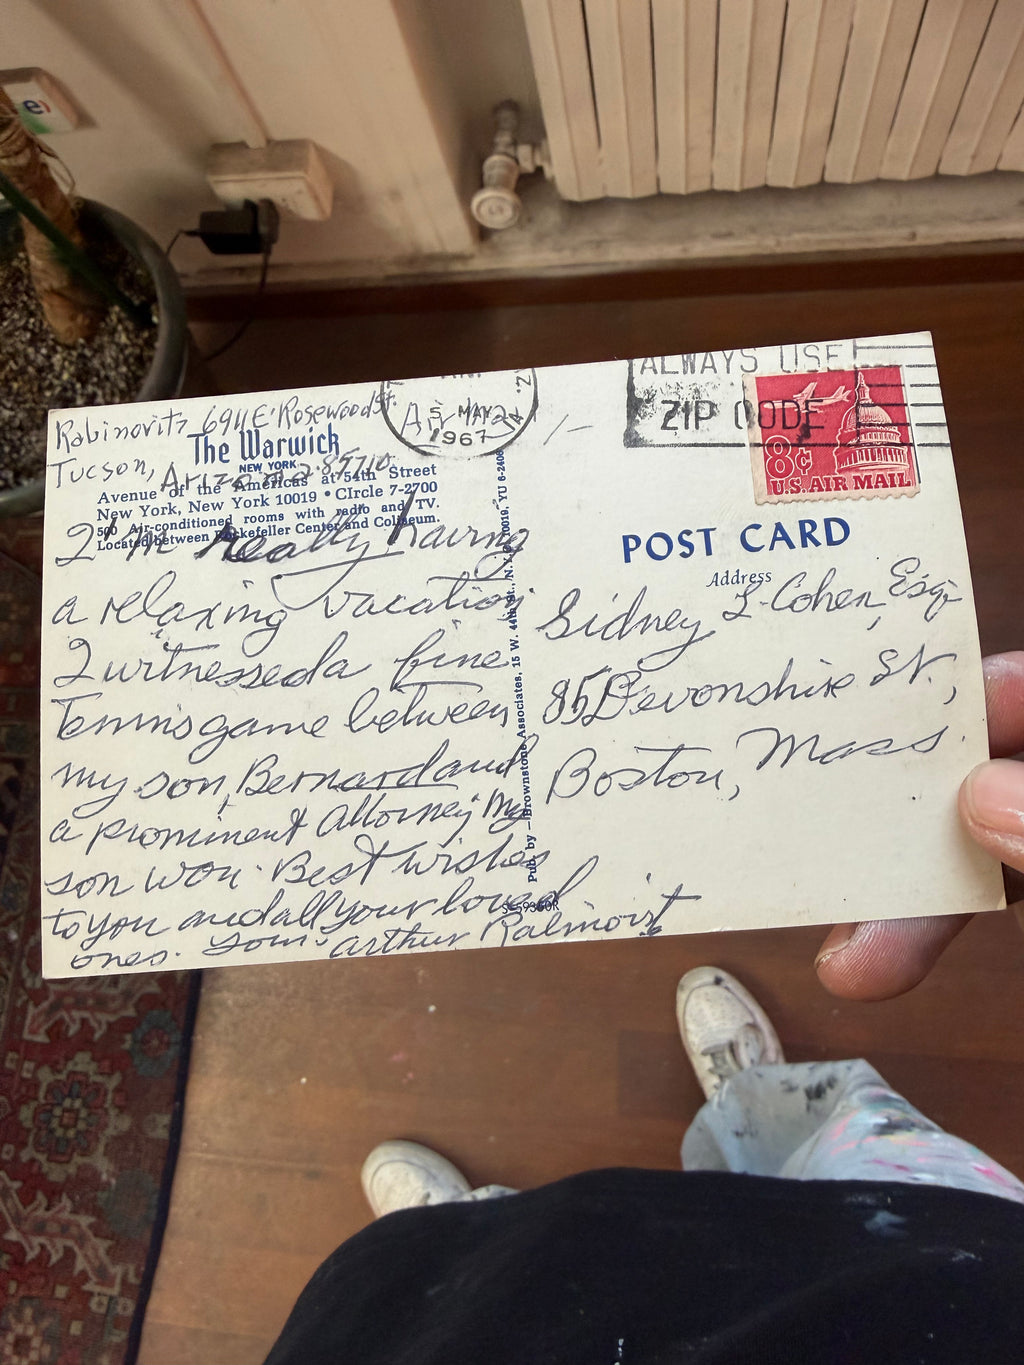 Rabinovitz 6911 E. Rosewood St.
Tucson, Arizona 85710
The Warwick
NEW YORK
Avenue of the Americas at 54th Street
New York, New York 10019 • CIrcle 7-2700
500 Air-conditioned rooms with radio and TV.
Located between Rockefeller Center and Coliseum.
I'm really having
a relaxing vacation
I witnessed a fine
Tennis game between
my son, Bernard and
a prominent Attorney My
son won. Best wishes
to you and all your loved
ones. Your
Arthur Rabinovitz
5 MAY
1967
ALWAYS USE
ZIP CODE
8¢
U.S. AIR MAIL
POST CARD
Address
Sidney L. Cohen, Esq
85 Devonshire St.,
Boston, Mass.
Pub. by — Brownstone Associates, 15 W. 44th St., N.Y. 10019, YU 6-2406